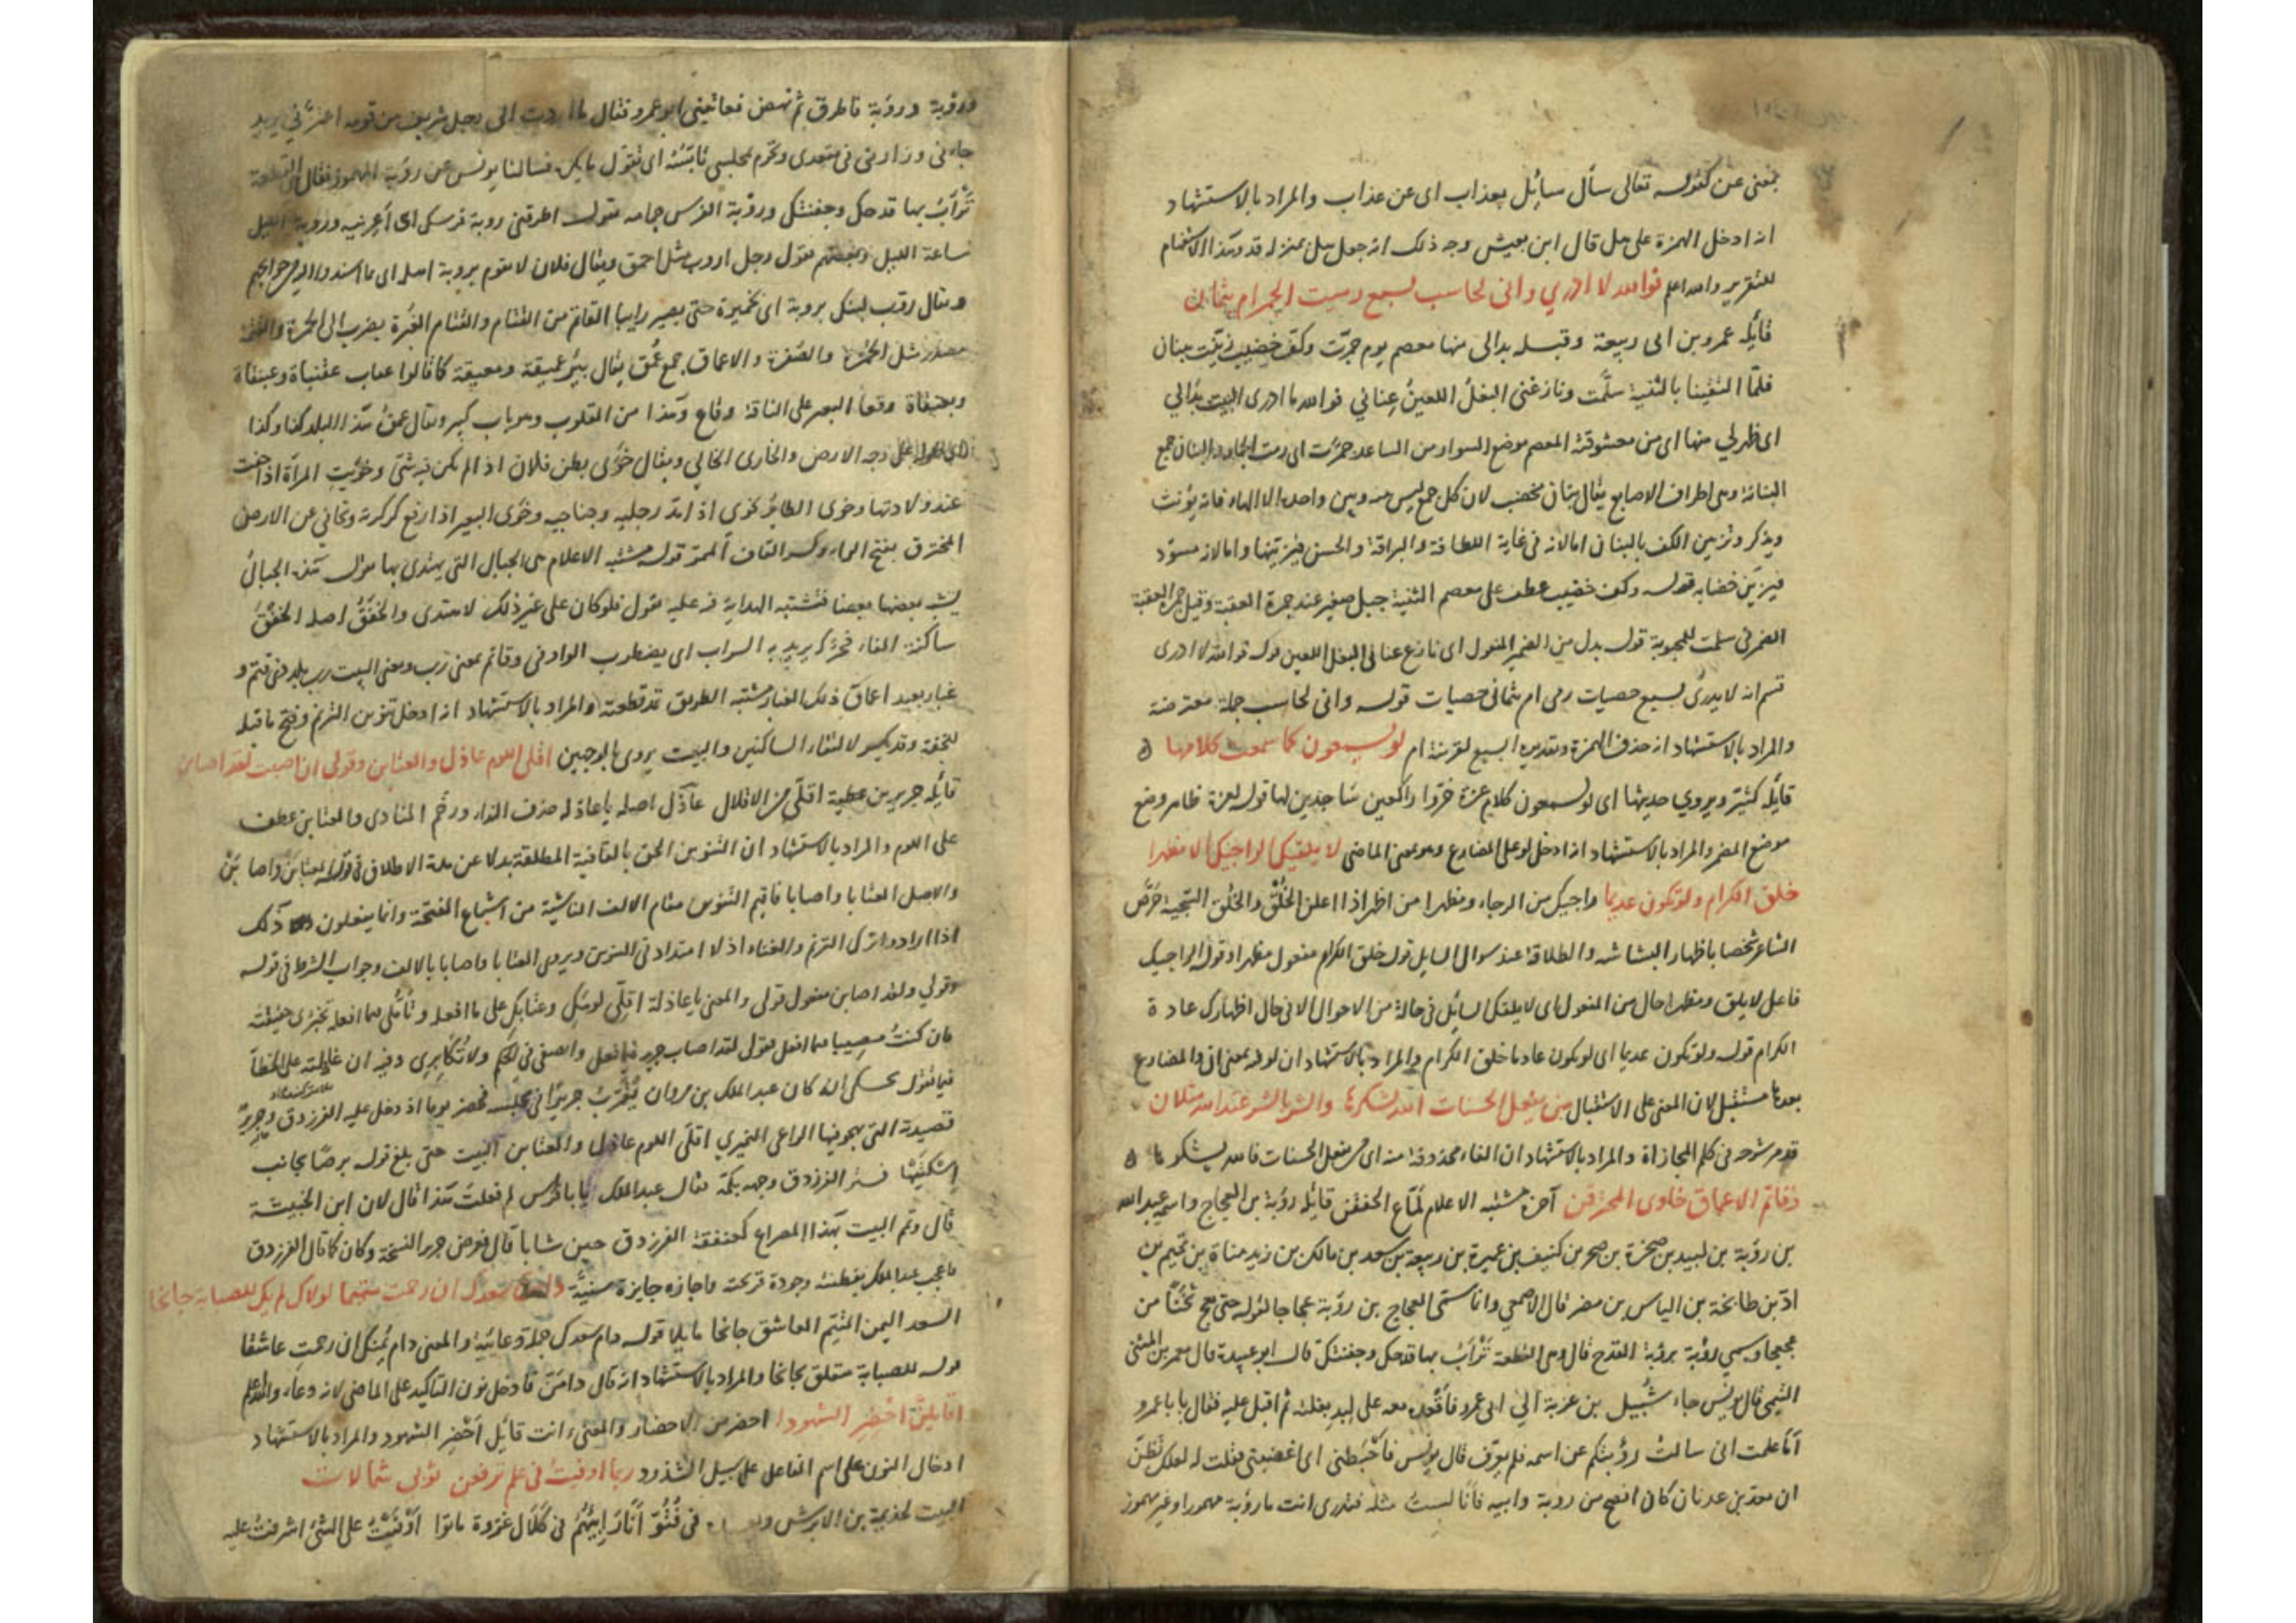 بمعنى عن كقوله تعالى سأل سائل بعذاب اى عن عذاب والمراد بالاستشهاد
انه ادخل الهمزة على هل قال ابن يعيش وجه ذلك انه جعل هل بمنزلة قد وهذا الاستفهام
للتقرير والله اعلم فوالله لا ادري وانى لحاسب بسبع رميت الجمر ام بثمان
قايله عمرو بن ابى ربيعة وقبله بدا لى منها معصم يوم جمرت وكف خضيب زينت ببنان
فلما التقينا بالثنية سلمت ونازعنى البغل اللعين عنانى فوالله ما ادرى البيت بدا لي
اى ظهر لي منها اى من معشوقته المعصم موضع السوار من الساعد جمرت اى رمت الجمار والبنان جمع
البنانة وهى اطراف الاصابع يقال بنان مخضب لان كل جمع ليس بينه وبين واحده الا الهاء فانه يؤنث
ويذكر وتزيين الكف بالبنان اما لانه فى غاية اللطافة والبراقة والحسن فيزينها واما لانه مسود
فيزين خضابه قوله وكف خضيب عطف على معصم الثنية جبل صغير عند جمرة العقبة وقيل جمرة العقبة
الضمير فى سلمت للمحبوبة قوله بدل من الضمير المفعول اى نازع عنانى البغل اللعين قوله فوالله لا ادرى
قسم انه لا يدرى بسبع حصيات رمى ام بثمانى حصيات قوله وانى لحاسب جملة معترضة
والمراد بالاستشهاد انه حذف الهمزة وتقديره ابسبع لقرينة ام لو يسمعون كما سمعت كلامها
قايله كثير ويروي حديثها اى لو يسمعون كلام عزة خروا راكعين ساجدين لها قوله لعزة ظاهر وضع
موضع المضمر والمراد بالاستشهاد انه ادخل لو على المضارع وهو بمعنى الماضى لا يلفك الراجيك الا مظهرا
خلق الكرام ولو تكون عديما واجيك من الرجاء ومظهرا من اظهر اذا اعلن الخلق والخلق السجية حرض
الشاعر شخصا باظهار البشاشة والطلاقة عند سوال السايل قوله خلق الكرام مفعول مظهرا وقوله الراجيك
فاعل لا يلق ومظهرا حال من المفعول اى لا يلفك السائل فى حالة من الاحوال الا فى حال اظهارك عادة
الكرام قوله ولو تكون عديما اى لو تكون عادما خلق الكرام والمراد بالاستشهاد ان لو فيه بمعنى ان والمضارع
بعدها مستقبل لان المعنى على الاستقبال من يفعل الحسنات الله يشكرها والشر بالشر عند الله مثلان
قد مر شرحه فى كلم المجازاة والمراد بالاستشهاد ان الفاء محذوفة منه اى من يفعل الحسنات فالله يشكرها
وقاتم الاعماق خاوى المخترقن آخره مشتبه الاعلام لماع الخفقن قايله رؤبة بن العجاج واسمه عبد الله
بن رؤبة بن لبيد بن صخرة بن كنيف بن عميرة بن ربيعة بن سعد بن مالك بن زيد مناة بن تميم بن
اد بن طابخة بن الياس بن مضر قال الاصمعي وانما سمى العجاج بن رؤبة عجاجا لقوله حتى يعج ثخنا من
عجعجا وسمي رؤبة برؤبة القدح قال وهى القطعة ترأب بها قدحك وجفنتك قال ابو عبيدة قال معمر بن المثنى
التيمى قال يونس جاء شبيل بن عزرة الي ابى عمرو فاقعده معه على لبد بغلته ثم اقبل عليه فقال يا با عمرو
أما علمت انى سالت رؤبتكم عن اسمه فلم يعرف قال يونس فاحفظنى اى اغضبنى فقلت له لعلك تظن
ان معد بن عدنان كان افصح من روبة وابيه فانا لست مثله فتدرى انت ما رؤبة مهموزا وغير مهموز
ورؤبة وروبة فاطرق ثم نهض فعاتبنى ابو عمرو فقال ما اردت الى رجل شريف من قومه
جاءنى وزارنى فى مقعدى وكرم مجلسى فسالنا يونس عن رؤبة المهموز فقال القطعة
ترأب بها قدحك وجفنتك وروبة الفرس جمامه يقول اطرقنى روبة فرسك اى أعرنيه وروبة الليل
ساعة الليل وبعضهم يقول رجل اروب مثل احمق ويقال فلان لا يقوم بروبة اهله اى ما اسندوا اليه من حوايجهم
ويقال روب لبنك بروبة اى بخميرة حتى يصير رايبا القاتم من القتام والقتام الغبرة يضرب الى الحمرة والقتمة
مصدر مثل الحمرة والصفرة والاعماق جمع عمق يقال بئر عميقة ومعيقة كما قالوا عقاب عقنباة وعبنقاة
وبعنقاة وقعا البعير على الناقة وقاع وهذا من المقلوب وهو باب كبير ويقال عمق هذا البلد كذا وكذا
وجه الارض والخاوى الخالي ويقال خوى بطن فلان اذا لم يكن فيه شئ وخويت المرأة اذا خفت
عند ولادتها وخوى الطائر يخوى اذا مد رجليه وجناحيه وخوى البعير اذا رفع كركرته وتجافى عن الارض
المخترق بفتح الراء وكسر القاف الممر قوله مشتبه الاعلام هى الجبال التى يهتدى بها يقول هذه الجبال
يشبه بعضها بعضا فتشتبه الهداية فيه عليه يقول فلو كان على غير ذلك لاهتدى والخفق اصله الخفق
ساكنة الفاء فحركه يريد به السراب اى يضطرب الواو فى وقاتم بمعنى رب ومعنى البيت رب بلد فى قتم و
غبار بعيد اعماق ذلك الغبار مشتبه الطريق قد قطعته والمراد بالاستشهاد انه ادخل تنوين الترنم وفتح ما قبله
للخفة وقد يكسر لالتقاء الساكنين والبيت يروى بالوجهين اقلى اللوم عاذل والعتابن وقولى ان اصبت لقد اصابن
قايله جرير بن عطية اقلى من الاقلال عاذل اصله يا عاذلة حذف النداء ورخم المنادى والعتابن عطف
على اللوم والمراد بالاستشهاد ان التنوين الحق بالقافية المطلقة بدلا عن مدة الاطلاق فى قوله العتابن واصابن
والاصل العتابا واصابا فاقيم التنوين مقام الالف الناشئة من اشباع الفتحة وانما يفعلون ذلك
اذا ارادوا ترك الترنم والغناء اذ لا امتداد فى التنوين ويروى العتابا واصابا بالالف وجواب الشرط فى قوله
وقولي ولقد اصابن مفعول قولى والمعنى يا عاذلة اقلى لومك وعتابك على ما افعله وتأملى فيما افعله تخبرى حقيقته
فان كنت مصيبا فيما افعل فقولى لقد اصاب جرير فيما فعل وانصفى فى الحكم ولا تكابرى
فيما نقول يحكى انه كان عبد الملك بن مروان يقرب جريرا فى مجلسه فحضر يوما اذ دخل عليه الفرزدق وجرير
قصيدته التى يهجو فيها الراعى النميري اقلى اللوم عاذل والعتابن البيت حتى بلغ قوله برصا بجانب
اسكتيها فستر الفرزدق وجهه بكمه فقال عبد الملك يا با فراس لم فعلت هذا قال لان ابن الخبيثة
قال وتم البيت بهذا المصراع كعنفقة الفرزدق حين شابا قال فعرض جرير النسخة وكان كما قال الفرزدق
فاعجب عبد الملك بفطنته وجودة قريحته واجازه جايزة سنية دامن سعدك ان رحمت متيما لولاك لم يك للصبابة جانحا
السعد اليمن المتيم العاشق جانحا مايلا قوله دام سعدك جملة دعائية والمعنى دام يمنك ان رحمت عاشقا
قوله للصبابة متعلق بجانحا والمراد بالاستشهاد انه قال دامن فادخل نون التاكيد على الماضى لانه دعاء والله اعلم
اقايلن احضر الشهودا احضر من الاحضار والمعنى ءانت قائل أحضر الشهود والمراد بالاستشهاد
ادخال النون على اسم الفاعل على سبيل الشذوذ ربما اوفيت فى علم ترفعن ثوبى شمالات
البيت لجذيمة بن الابرش فى فتو أنا رابئهم فى كلال غزوة ماتوا اوفيت على الشئ اشرفت عليه